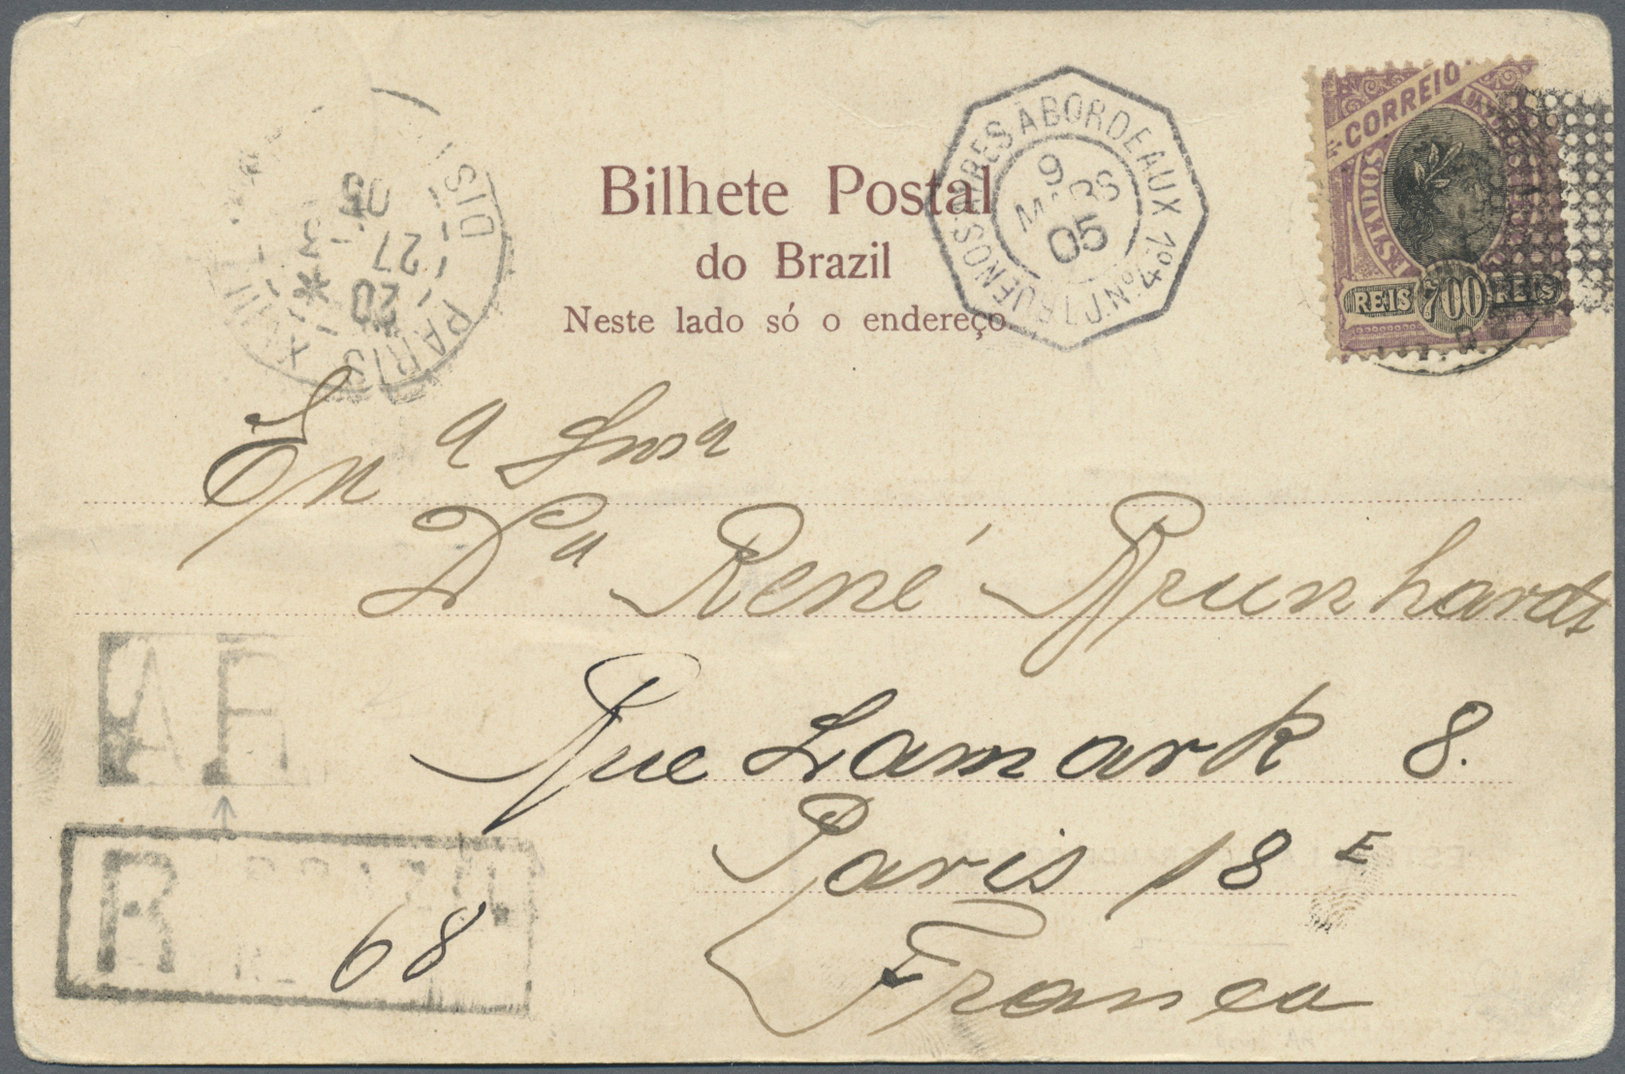 Bilhete Postal
do Brazil
Neste lado só o endereço
BUENOS AYRES A BORDEAUX 1º
L.J. Nº 4
9
MARS
05
CORREIO
ESTADOS
REIS 700 REIS
PARIS XVIII
DIS
20
27 3
05
Exmª Snrª
Dª René Brunhardt
Rue Lamark 8.
Paris 18 E
França
AR
R
68